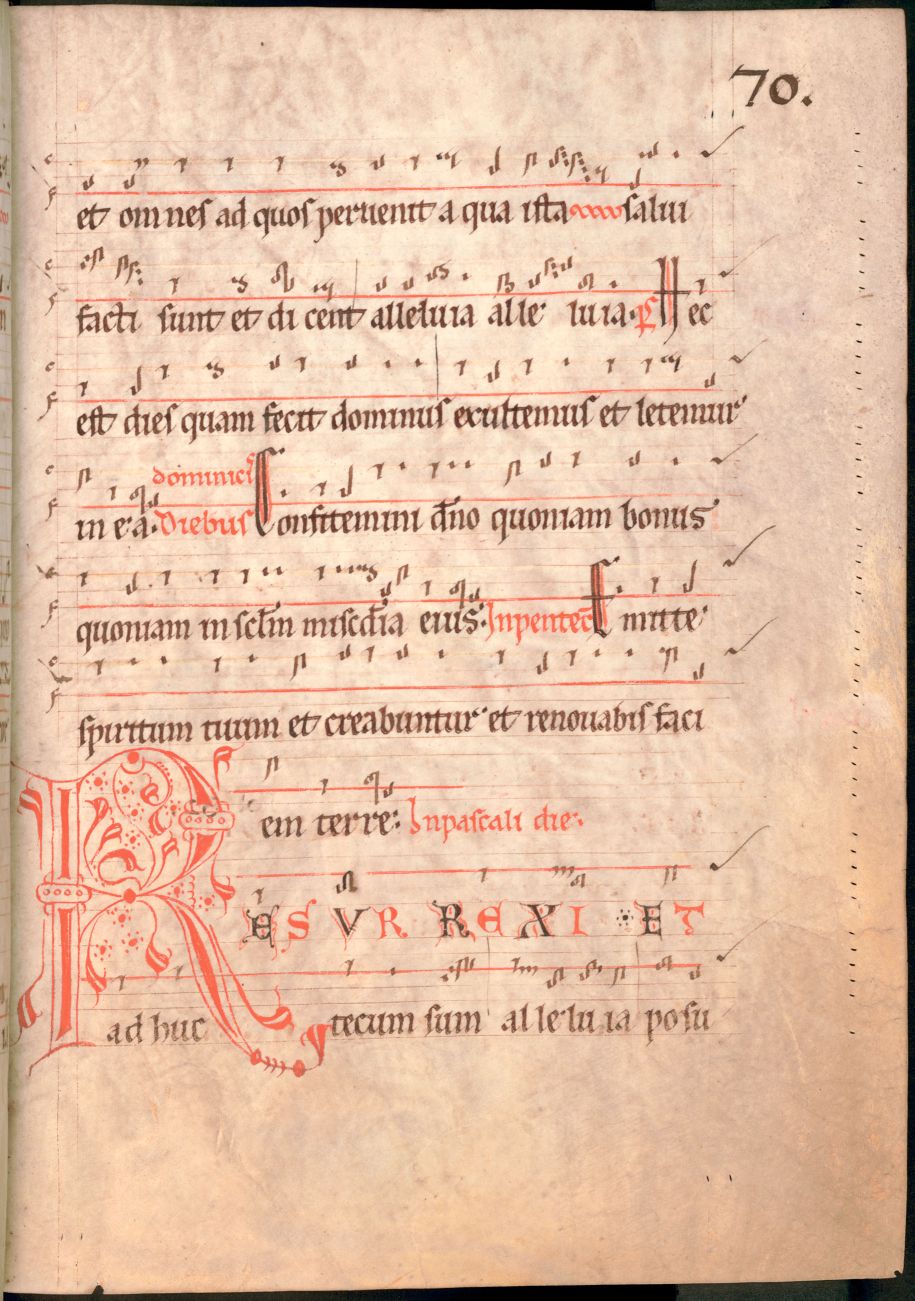 70.
et omnes ad quos peruenit a qua ista salui
facti sunt et dicent alleluia alleluia. ps Hec
est dies quam fecit dominus exultemus et letemur
dominicis
in ea. Diebus Confitemini dño quoniam bonus
quoniam in sclm misedia eius. Inpentec Emitte
spiritum tuum et creabuntur et renouabis faci
em terre. Inpascali die.
RESVRREXI ET
ad huc tecum sum alleluia posu